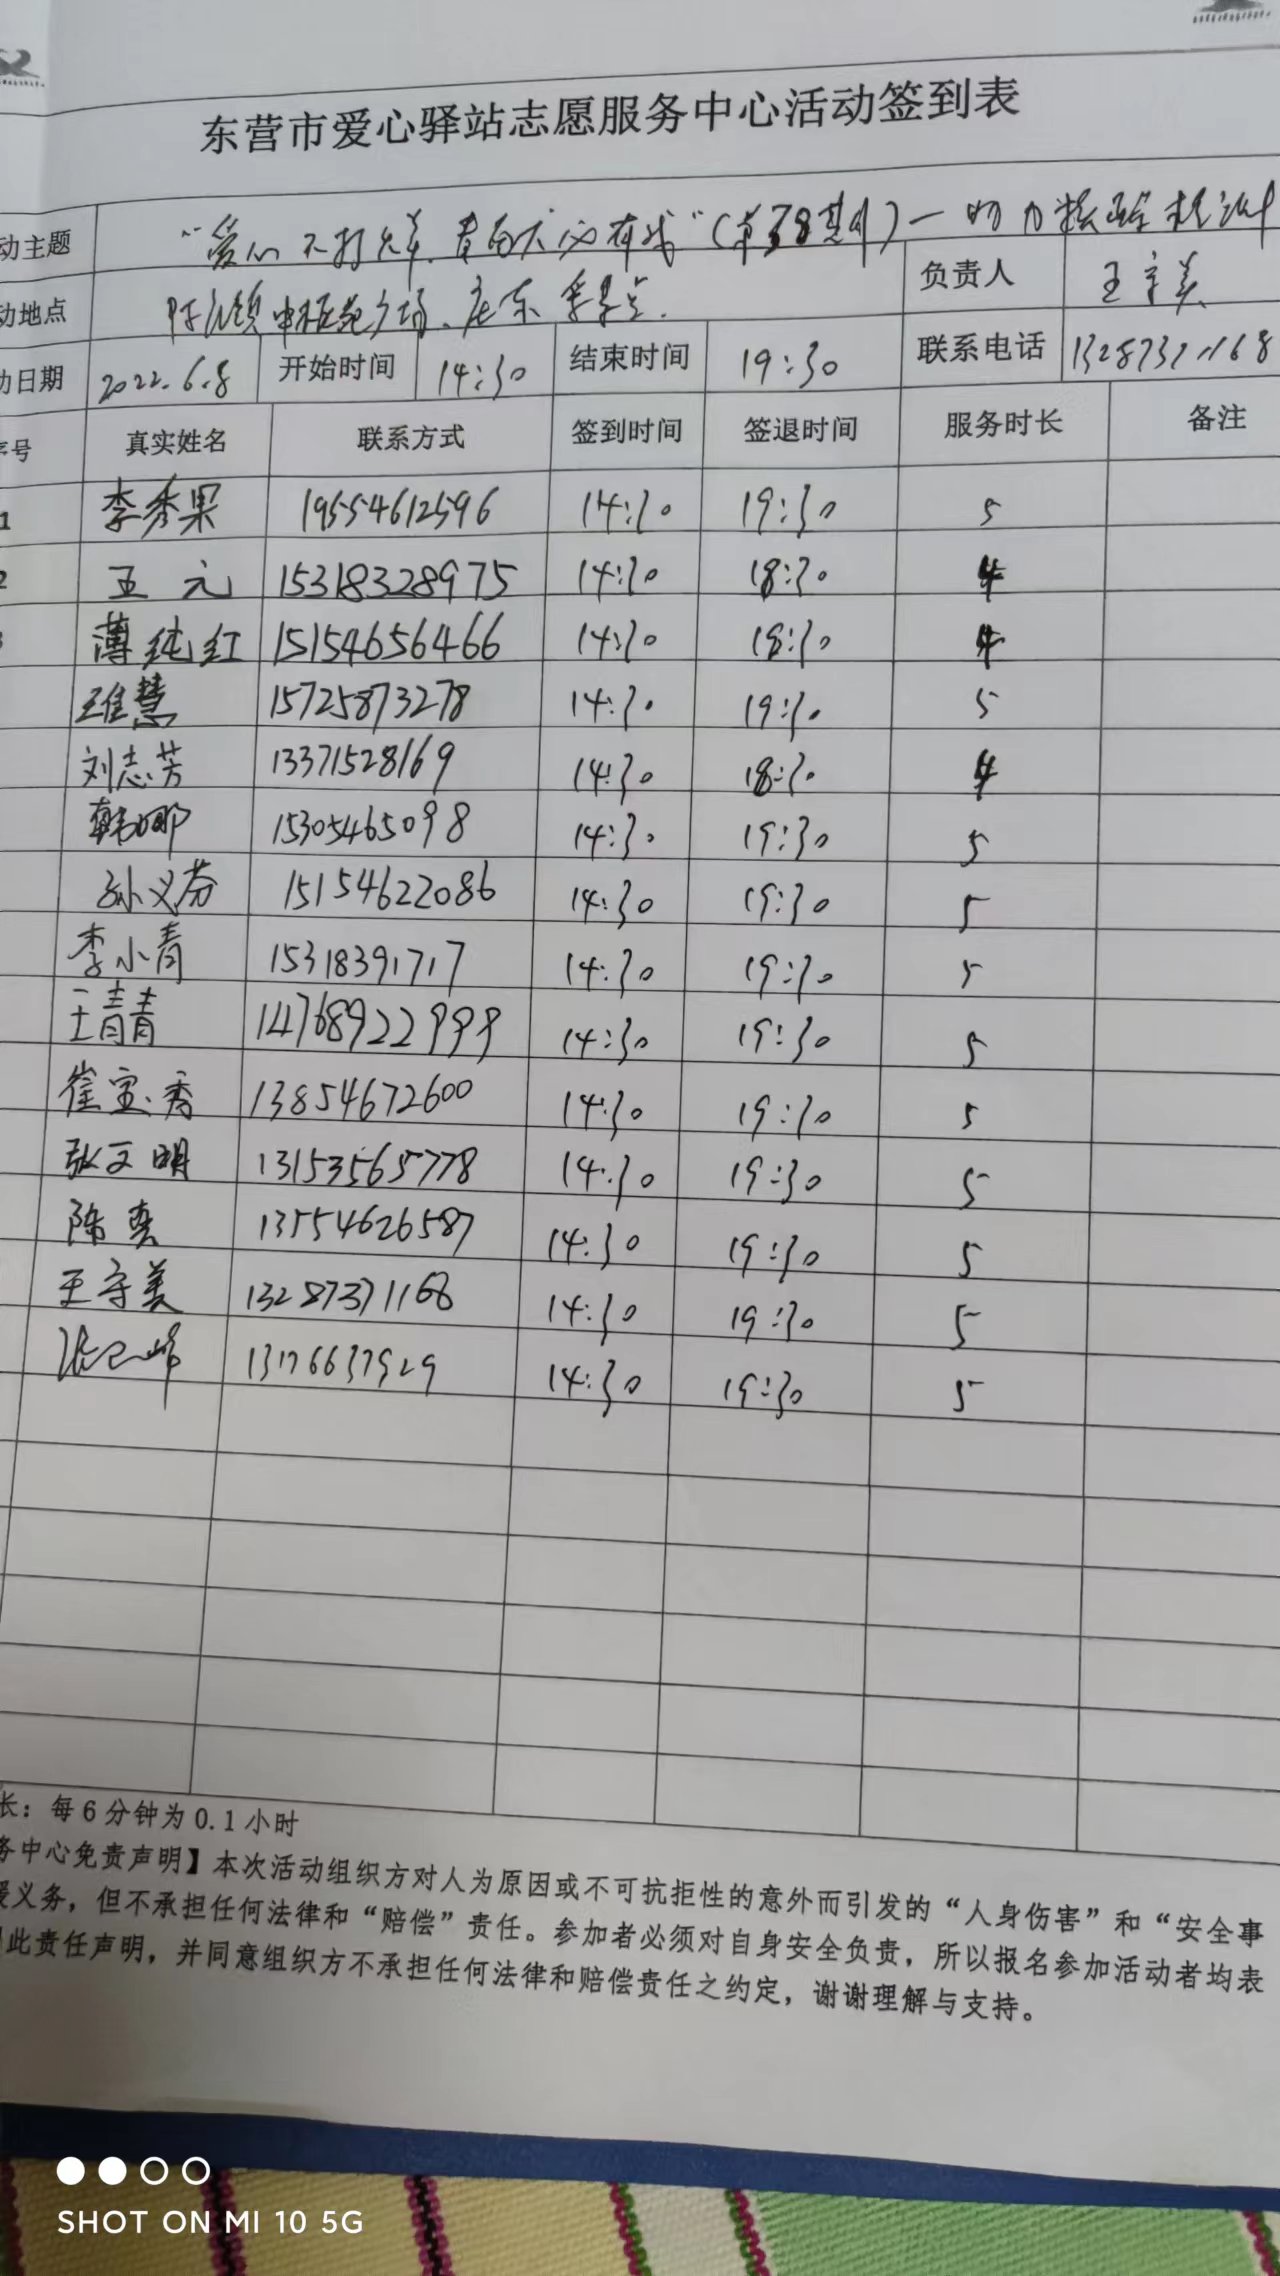 东营市爱心驿站志愿服务中心活动签到表
动主题 “爱心不打烊，有我”（第38期）一助力核酸检测
动地点 负责人 王守美
动日期 2022.6.8 开始时间 14:30 结束时间 19:30 联系电话 13287371168
序号 真实姓名 联系方式 签到时间 签退时间 服务时长 备注
1 李秀果 19554612596 14:30 19:30 5
2 王元 15318328975 14:30 18:30 4
3 薄纯红 15154656466 14:30 18:30 4
王维慧 15725873278 14:30 19:30 5
刘志芳 13371528169 14:30 18:30 4
韩娜 15305465098 14:30 19:30 5
孙义芬 15154622086 14:30 19:30 5
李小青 15318391717 14:30 19:30 5
王青青 14768922999 14:30 19:30 5
崔宝秀 13854672600 14:30 19:30 5
张文明 13153565778 14:30 19:30 5
陈奕 13554626587 14:30 19:30 5
王守美 13287371168 14:30 19:30 5
13176637929 14:30 19:30 5
长：每6分钟为0.1小时
务中心免责声明】本次活动组织方对人为原因或不可抗拒性的意外而引发的“人身伤害”和“安全事
援义务，但不承担任何法律和“赔偿”责任。参加者必须对自身安全负责，所以报名参加活动者均表
此责任声明，并同意组织方不承担任何法律和赔偿责任之约定，谢谢理解与支持。
SHOT ON MI 10 5G